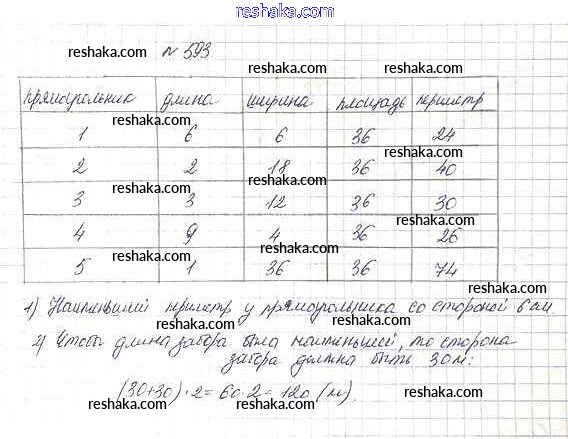 reshaka.com
№ 593
reshaka.com
reshaka.com
reshaka.com
прямоугольник длина ширина площадь периметр
reshaka.com
1 6 6 36 24
reshaka.com
reshaka.com
2 2 18 36 40
reshaka.com
reshaka.com
3 3 12 36 30
reshaka.com
4 9 4 36 26
reshaka.com
reshaka.com
5 1 36 36 74
reshaka.com
reshaka.com
1) Наименьший периметр у прямоугольника со стороной 6 см.
reshaka.com
2) Чтобы длина забора была наименьшей, то сторона
забора должна быть 30м:
reshaka.com
reshaka.com
(30+30)·2=60·2=120 (м).
reshaka.com
reshaka.com
reshaka.com